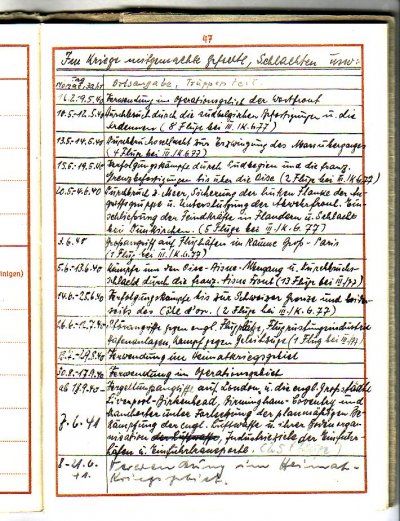 47
Im Kriege mitgemachte Gefechte, Schlachten usw.
Tag Monat, Jahr Ortsangabe, Truppenteil
16.2.-9.5.40 Verwendung im Operationsgebiet der Westfront
10.5.-12.5.40 Durchbruch durch die südbelgischen Befestigungen u. die
Ardennen (8 Flüge bei III./K.G.77)
13.5.-14.5.40 Durchbruchschlacht zur Erzwingung des Maasüberganges
(4 Flüge bei III./K.G.77)
15.5.-19.5.40 Verfolgungskämpfe durch Südbelgien und die franz.
Grenzbefestigungen bis über die Oise (2 Flüge bei III./K.G.77)
20.5.-4.6.40 Durchbruch z. Meer, Sicherung der linken Flanke der An-
griffsgruppe u. Unterstützung der Abwehrfront. Ein-
schließung der Feindkräfte in Flandern u. Schlacht
bei Dünkirchen. (5 Flüge bei III./K.G.77)
3.6.40 Großangriff auf Flughäfen im Raume Groß-Paris
(1 Flug bei III./K.G.77)
5.6.-13.6.40 Kämpfe um den Oise-Aisne- u. Durchbruchs-
schlacht durch die franz. Aisne Front (13 Flüge bei III./77)
14.6.-25.6.40 Verfolgungskämpfe bis zur Schweizer Grenze und
seits des Côte d'or. (2 Flüge bei III./K.G.77)
26.6.-12.7.40 Störangriffe gegen engl. Flugplätze, Flugrüstungsindustrie
Hafenanlagen, Kampf gegen Geleitzüge (1 Flug bei III./77)
-29.8.40 Verwendung im Heimatkriegsgebiet
30.8.-17.9.40 Verwendung im Operationsgebiet
ab 18.9.40- Vergeltungsangriffe auf London, u. die engl. Großstädte
Liverpool-Birkenhead, Birmingham-Coventry und
Manchester unter Fortsetzung der planmäßigen Be-
7.6.41 kämpfung der engl. Luftwaffe u. ihrer Bodenorga-
nisation Industrieziele der Einfuhr-
häfen u. Einfuhrtransporte.
8.-21.6. Verwendung im Heimat-
41. kriegsgebiet.